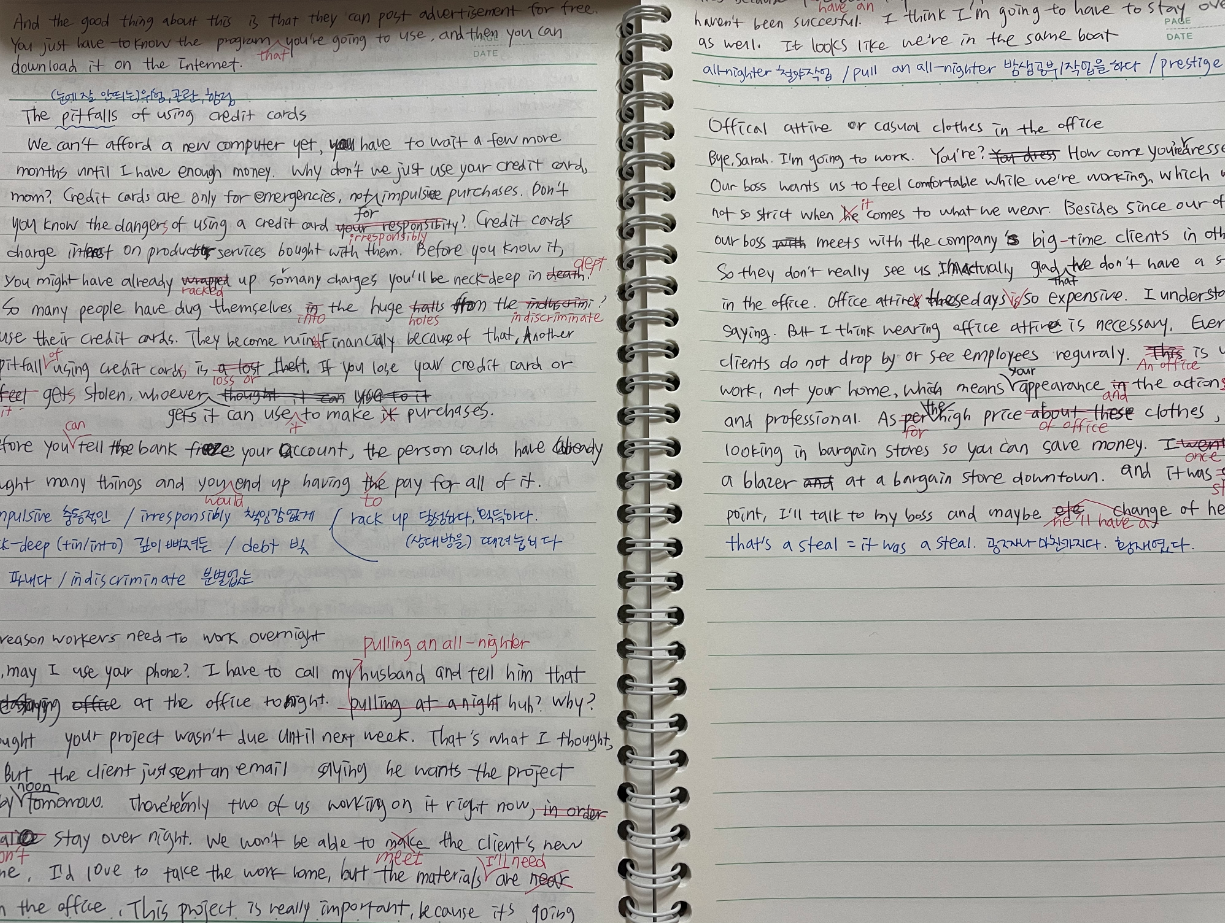 And the good thing about this is that they can post advertisement for free.
You just have to know the program you're going to use, and then you can
that
download it on the Internet.
DATE
(눈에 잘 안띄는) 위험, 곤란, 함정
The pitfalls of using credit cards
We can't afford a new computer yet, you have to wait a few more
months until I have enough money. Why don't we just use your credit card,
mom? Credit cards are only for emergencies, not impulsive purchases. Don't
you know the dangers of using a credit card your responsibity? Credit cards
for
irresponsibly
charge interest on products services bought with them. Before you know it,
you might have already wrapped up so many charges you'll be neck-deep in death?
racked
dept
So many people have dug themselves in the huge halls from the indiscrimi?
into holes indiscriminate
use their credit cards. They become ruined financially because of that, Another
pitfall of using credit cards is a lost theft. If you lose your credit card or
loss or
feel gets stolen, whoever thought it can use to it
it
gets it can use to make it purchases.
it
fore you tell the bank freeze your account, the person could have already
can
ught many things and you end up having the pay for all of it.
would to
mpulsive 충동적인 / irresponsibly 책임감없게 / rack up 달성하다, 획득하다.
k-deep (+in/into) 깊이 빠져든 / debt 빚 (상대방을) 때려눕히다
파내다 / indiscriminate 분별없는
reason workers need to work overnight
pulling an all-nighter
, may I use your phone? I have to call my husband and tell him that
staying office at the office tonight. pulling at a night huh? why?
ought your project wasn't due until next week. That's what I thought,
But the client just sent an email saying he wants the project
noon
by tomorrow. There're only two of us working on it right now, in order
stay over night. We won't be able to make the client's new
meet
ne. I'd love to take the work home, but the materials are near
I'll need
n the office. This project is really important, because it's going
have an
haven't been succesful. I think I'm going to have to stay ove
PAGE
as well. It looks like we're in the same boat
DATE
all-nighter 철야작업 / pull an all-nighter 밤샘공부/작업을 하다 / prestige
Offical attire or casual clothes in the office
Bye, Sarah. I'm going to work. You're? You dress How come you're dresse
Our boss wants us to feel comfortable while we're working, which w
not so strict when he comes to what we wear. Besides since our of
it
our boss with meets with the company's big-time clients in oth
So they don't really see us I'm actually glad we don't have a s
that
in the office. Office attires these days is so expensive. I understa
saying. But I think wearing office attire is necessary. Even
clients do not drop by or see employees reguraly. This is u
An office
work, not your home, which means appearance in the action
your
and
and professional. As per high price about these clothes,
the
for of office
looking in bargain stores so you can save money. I went
once
a blazer and at a bargain store downtown. and it was
st
point, I'll talk to my boss and maybe change of he
he'll have a
that's a steal = it was a steal. 공짜나 마찬가지다. 횡재였다.